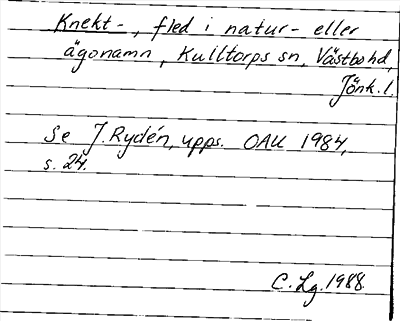 Knekt-, fled i natur- eller
ägonamn, Kulltorps sn, Västbo hd,
Jönk. l.
Se J. Rydén, upps. OAU 1984,
s. 24.
C. Lg. 1988